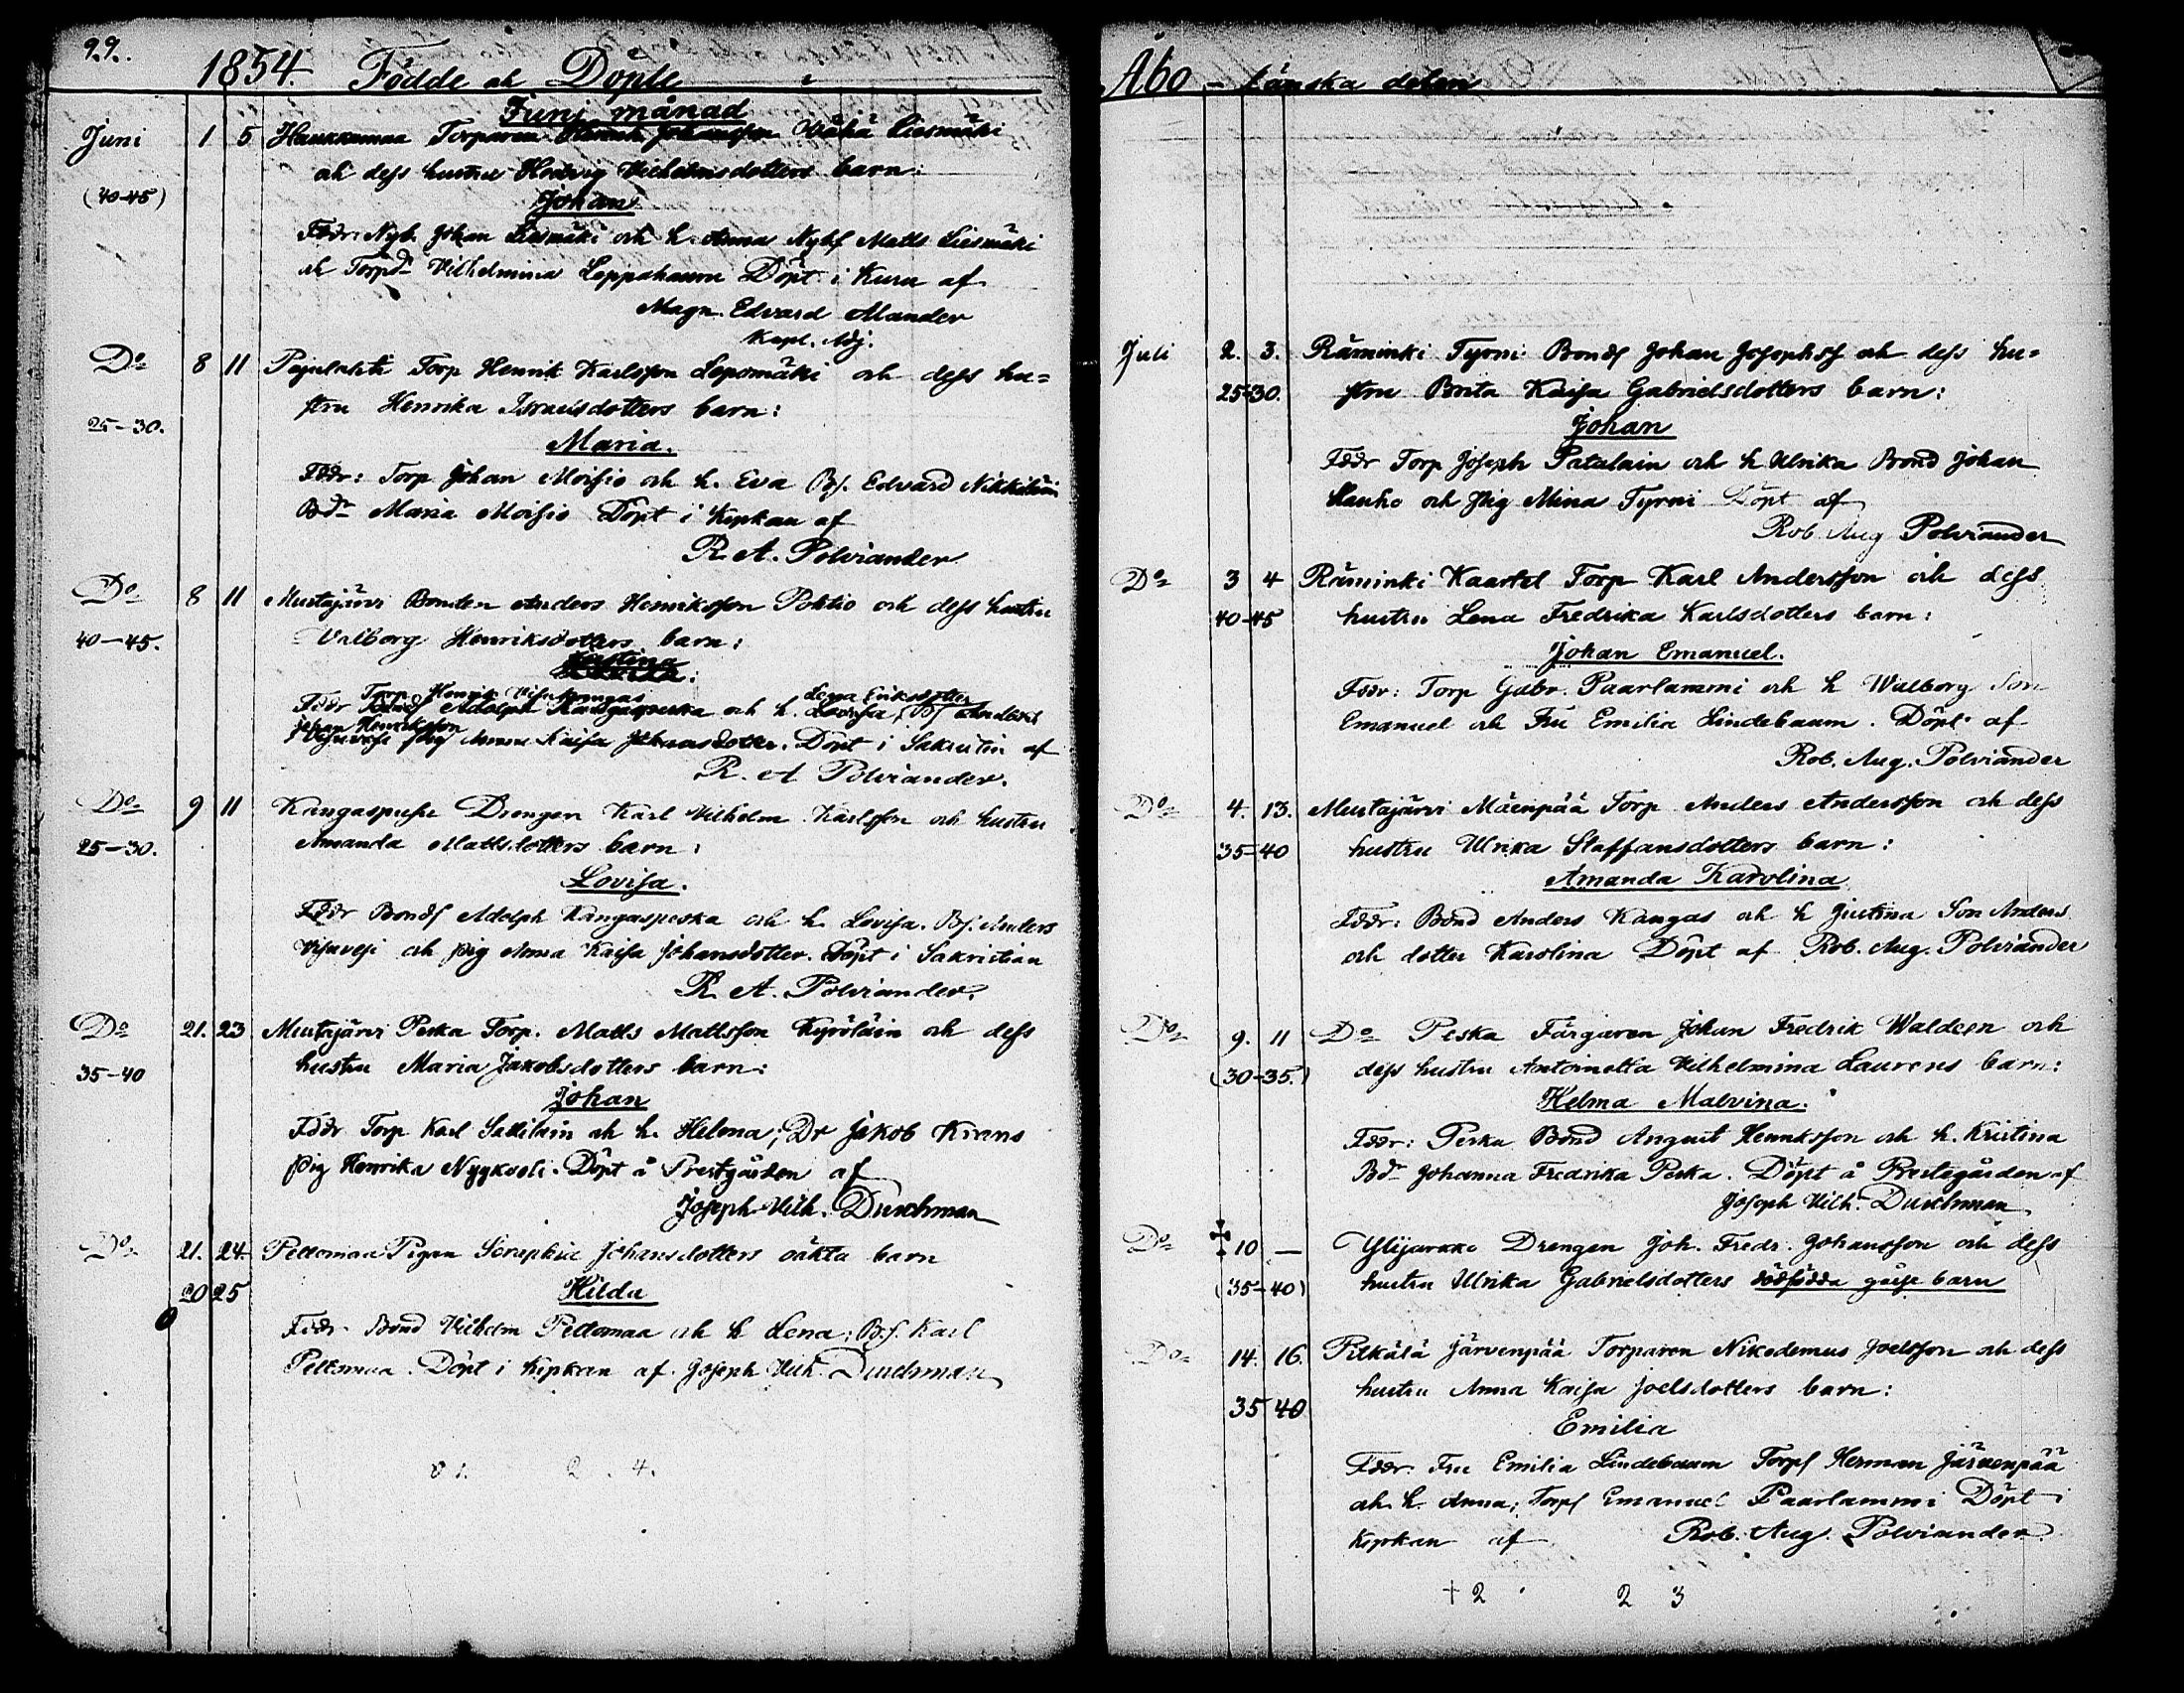 99.
1854. Födde och Döpte
Juni månad
Juni 1 5 Haukkamaa Torparen Henrik Johansson Vähä Liesmäki
(40-45) och dess hustru Hedvig Vilhelmsdotters barn:
Johan
Fddr: Nyb. Johan Liesmäki och h. Anna Nybs Matts Liesmäki
och Torpdr Vilhelmina Leppähaara Döpt i Kuru af
Magn. Edvard Mander
Kapl. Adj.
Do 8 11 Pajulahti Torp Henrik Karlsson Lepomäki och dess hu=
25-30. stru Henrika Israelsdotters barn:
Maria.
Fddr: Torp Johan Moisio och h. Eva Bs. Edvard Nikkiläin
Bdr Maria Moisio Döpt i Kyrkan af
R. A. Polviander
Do 8 11 Mustajärvi Bonden Anders Henriksson Pohtio och dess hustru
40-45. Valborg Henriksdotters barn:
Justina
Torp Henrik Lena Eriksdotter
Fddr Bonds Adolph Kangaspeska och h. Lovisa, Bs Anders
Johan Henriksson
pig Anna Kaisa Johansdotter. Döpt i Sakristin af
R. A Polviander.
Do 9 11 Kangaspeske Drengen Karl Vilhelm Karlsson och hustru
25-30. Amanda Mattsdotters barn:
Lovisa.
Fddr Bonds Adolph Kangaspeska och h. Lovisa. Bs. Anders
Visuvesi och pig Anna Kaisa Johansdotter. Döpt i Sakristian
R. A. Polviander.
Do 21. 23 Mustajärvi Peska Torp. Matts Mattsson Kyröläin och dess
35-40 hustru Maria Jakobsdotters barn:
Johan
Fddr Torp Karl och h. Helena; Dr Jakob
pig Henrika Döpt å Prestgården af
Joseph Vilh. Durchman
Do 21. 24 Peltomaa Pigan Seraphia Johansdotters oäkta barn
20 25 Hilda
Fddr. Bond Vilhelm Peltomaa och h Lena; Bs. Karl
Peltomaa. Döpt i Kyrkan af. Joseph Vilh. Durchman
2 . 4.
Åbo - länska delen
Juli 2. 3. Räminki Tyrni Bonds Johan Josephss och dess hu=
25-30. stru Brita Kaisa Gabrielsdotters barn:
Johan
Fddr Torp Joseph Patalain och h Ulrika Bond Johan
Hanho och pig Mina Tyrni Döpt af
Rob. Aug Polviander
Do 3 4 Räminki Kaartet Torp Karl Andersson och dess
40-45 hustru Lena Fredrika Karlsdotters barn:
Johan Emanuel.
Fddr: Torp Gabr. Paarlammi och h Walborg Son
Emanuel och Fru Emilia Lindebaum. Döpt af
Rob. Aug. Polviander
Do 4. 13. Mustajärvi Mäenpää Torp Anders Andersson och dess
35-40 hustru Ulrika Staffansdotters barn:
Amanda Karolina
Fddr: Bond Anders Kangas och h Justina Son Anders
och dotter Karolina Döpt af Rob. Aug. Polviander
Do 9. 11 Do Peska Färgaren Johan Fredrik Waldeen och
(30-35.) dess hustru Antoinetta Vilhelmina Laurens barn:
Helma Malvina.
Fddr: Peska Bond August Henriksson och h. Kristina
Bdr Johanna Fredrika Peska. Döpt å Prestegården af
Joseph Vilh. Durchman
Do ✝ 10 — Ylijarkko Drengen Joh. Fredr. Johansson och dess
(35-40) hustru Ulrika Gabrielsdotters dödfödda gosse barn
Do 14. 16. Pitkälä Järvenpää Torparen Nikodemus Joelsson och dess
35 40 hustru Anna Kaisa Joelsdotters barn:
Emilia
Fddr: Fru Emilia Lindebaum Torps Herman Järvenpää
och h. Anna; Torps Emanuel Paarlammi Döpt i
Kyrkan af Rob. Aug. Polviander
+ 2 2 3